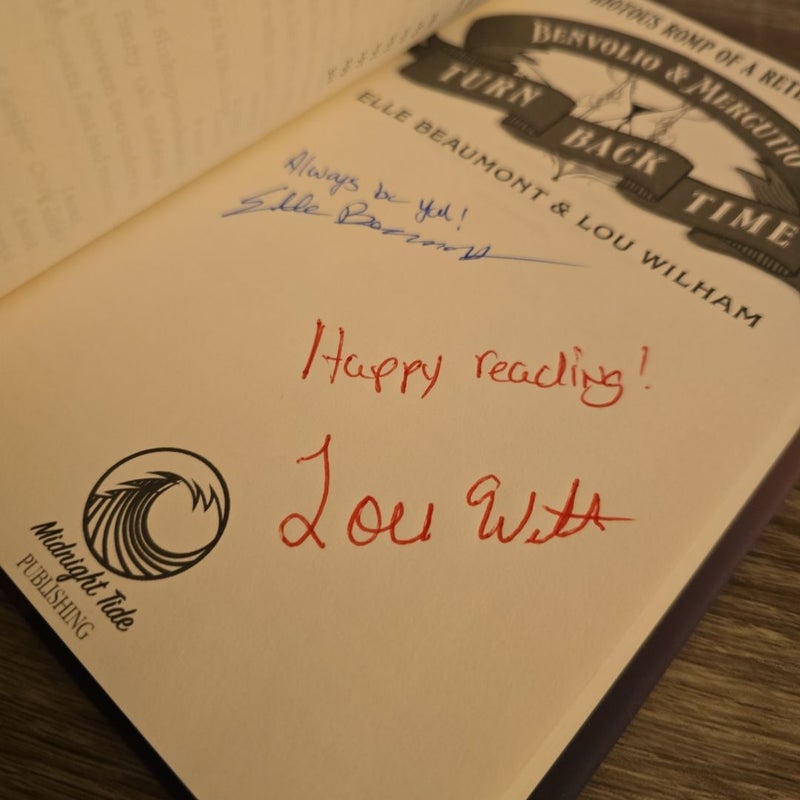 RIOTOUS ROMP OF A RETE
BENVOLIO & MERCUTIO
TURN BACK TIME
ELLE BEAUMONT & LOU WILHAM
Always be you!
Elle Beaumont
Happy reading!
Lou Wilh
Midnight Tide
PUBLISHING